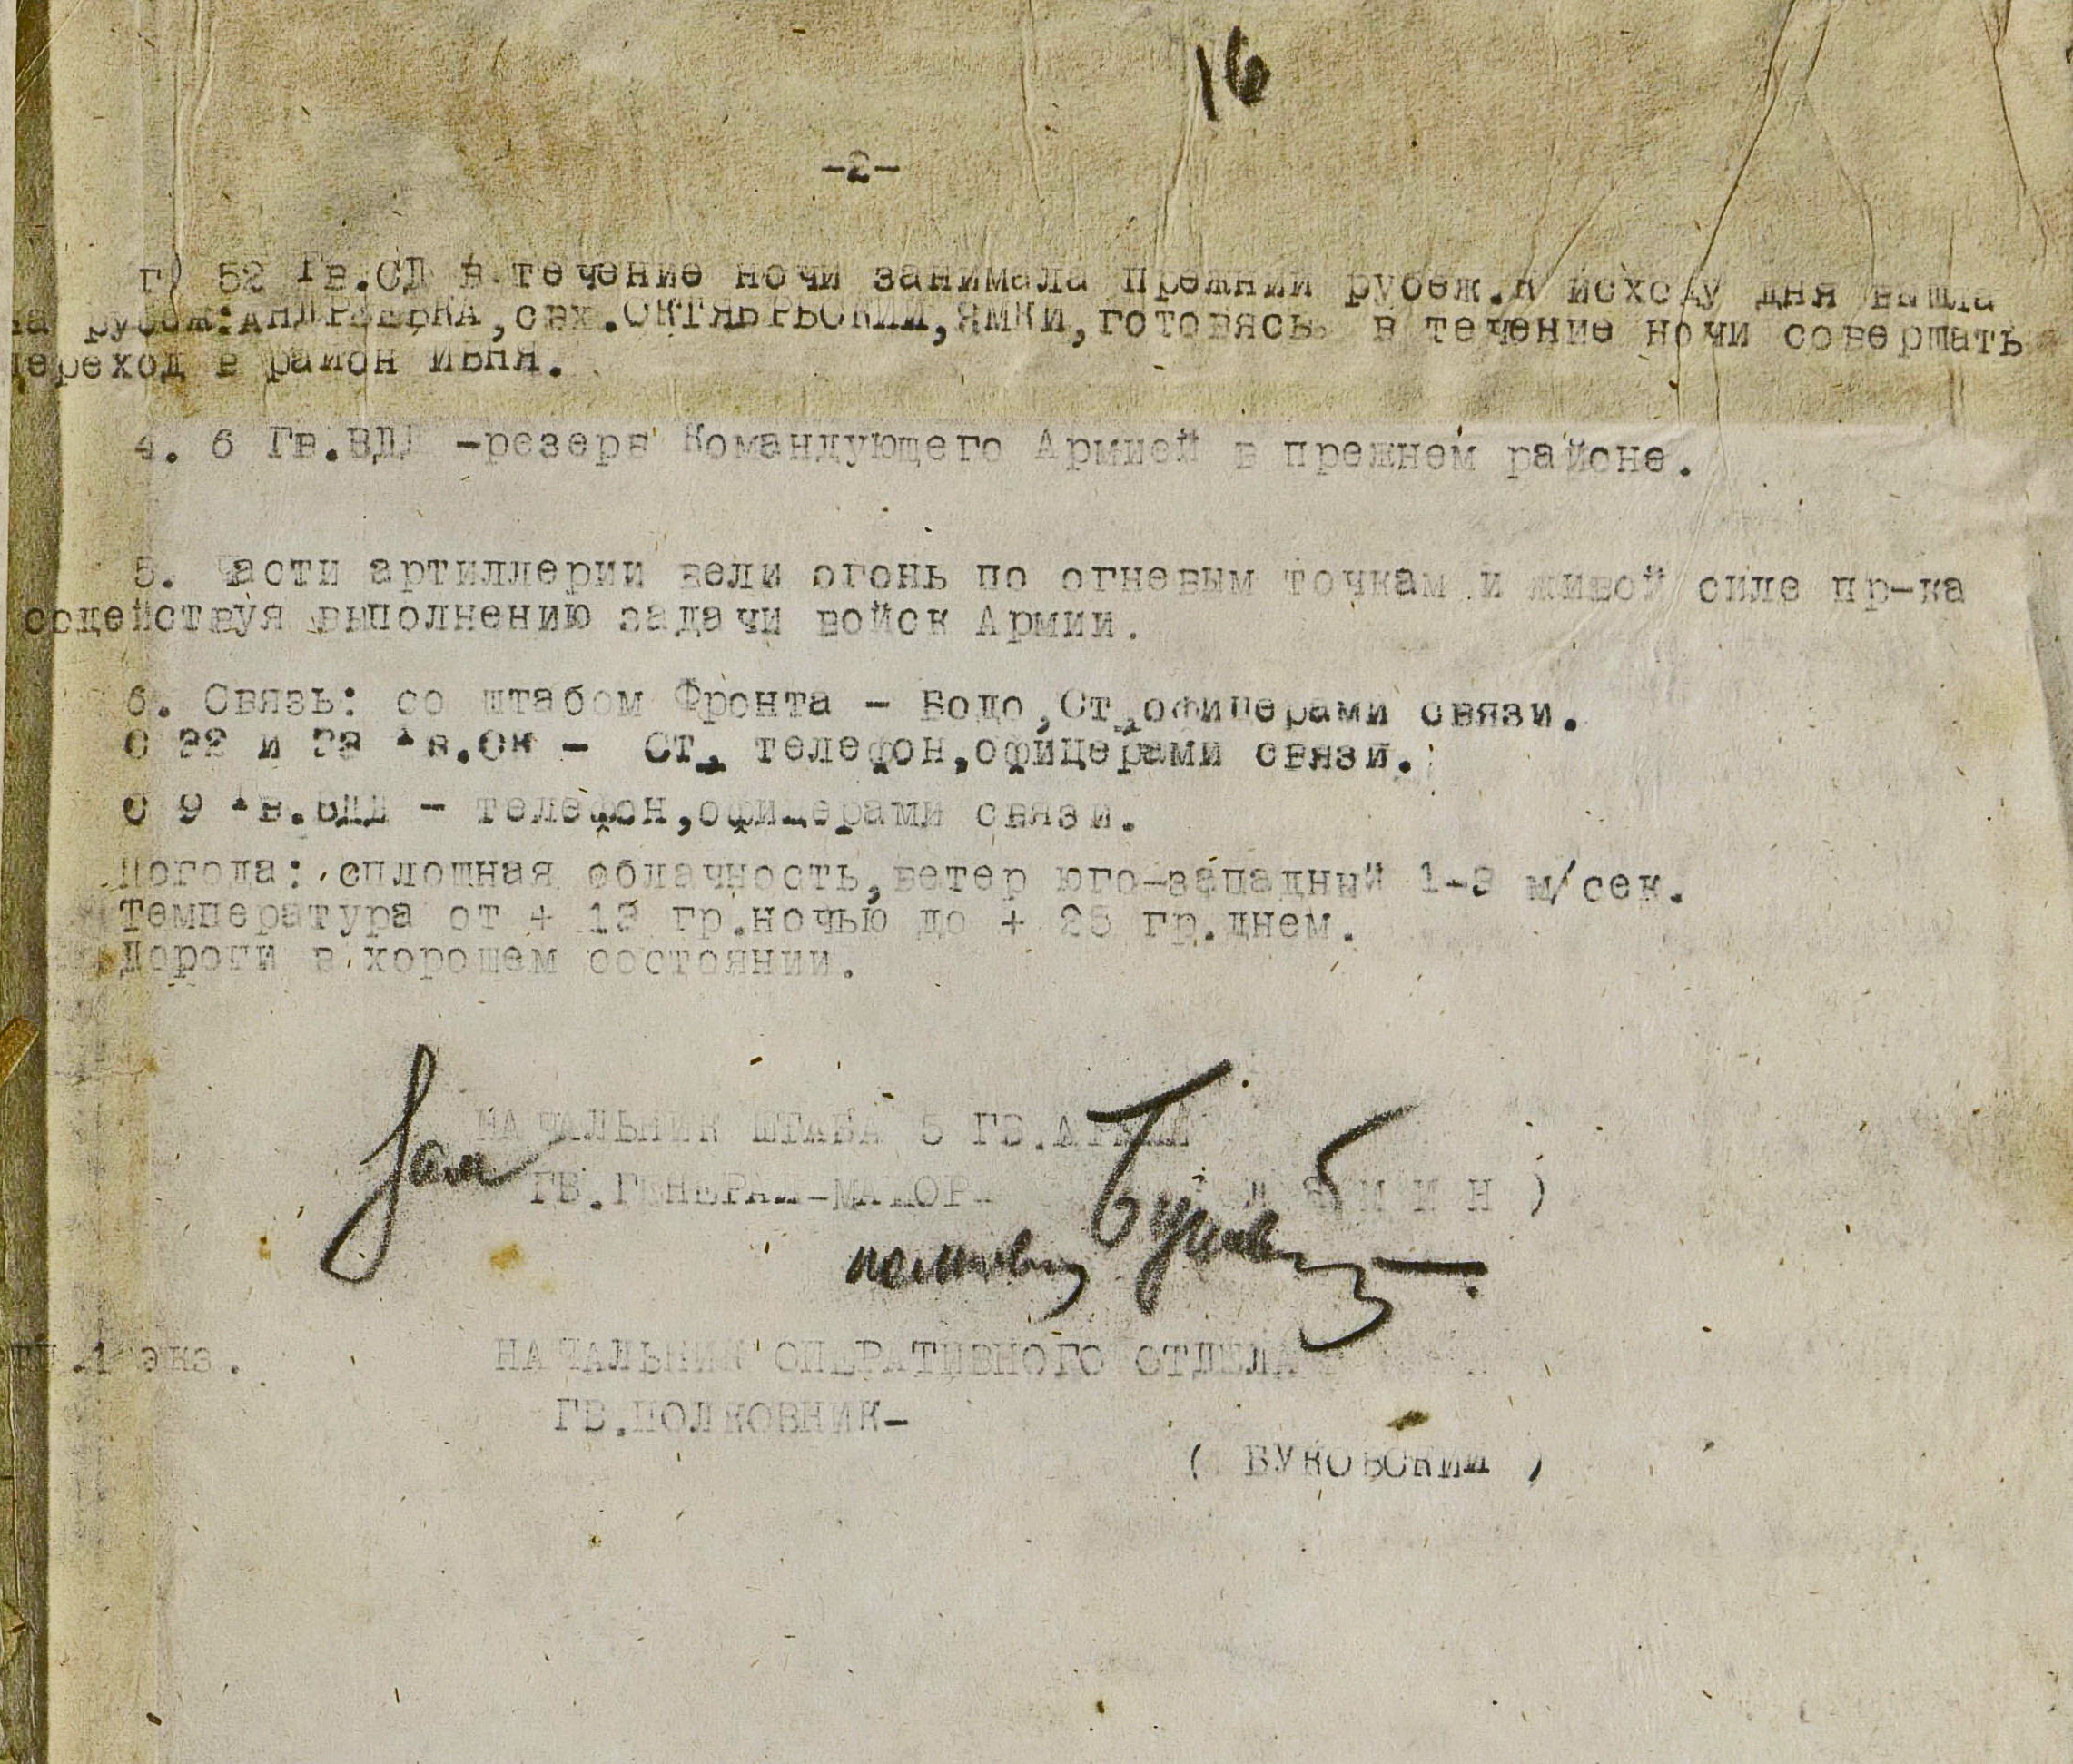 16
-2-
г) 52 Гв.СД в течение ночи занимала прежний рубеж.К исходу дня вышла
на рубеж:АНДРЕЕВКА,свх.ОКТЯБРЬСКИЙ,ЯМКИ,готовясь в течение ночи совершать
переход в район ИВНЯ.
4. 6 Гв.ВДД -резерв Командующего Армией в прежнем районе.
5. Части артиллерии вели огонь по огневым точкам и живой силе пр-ка
содействуя выполнению задачи войск Армии.
6. Связь: со штабом Фронта - Бодо,Ст,офицерами связи.
С 32 и 33 Гв.Ск - Ст, телефон,офицерами связи.
С 9 Гв.ВДД - телефон,офицерами связи.
Погода: сплошная облачность,ветер юго-западный 1-3 м/сек.
Температура от + 13 гр.ночью до + 25 гр.днем.
Дороги в хорошем состоянии.
Зам НАЧАЛЬНИК ШТАБА 5 ГВ.АРМИИ
ГВ.ГЕНЕРАЛ-МАЙОР- ЛЯМИН )
полковник
1 экз. НАЧАЛЬНИК ОПЕРАТИВНОГО ОТДЕЛА
ГВ.ПОЛКОВНИК-
( БУКОВСКИЙ )